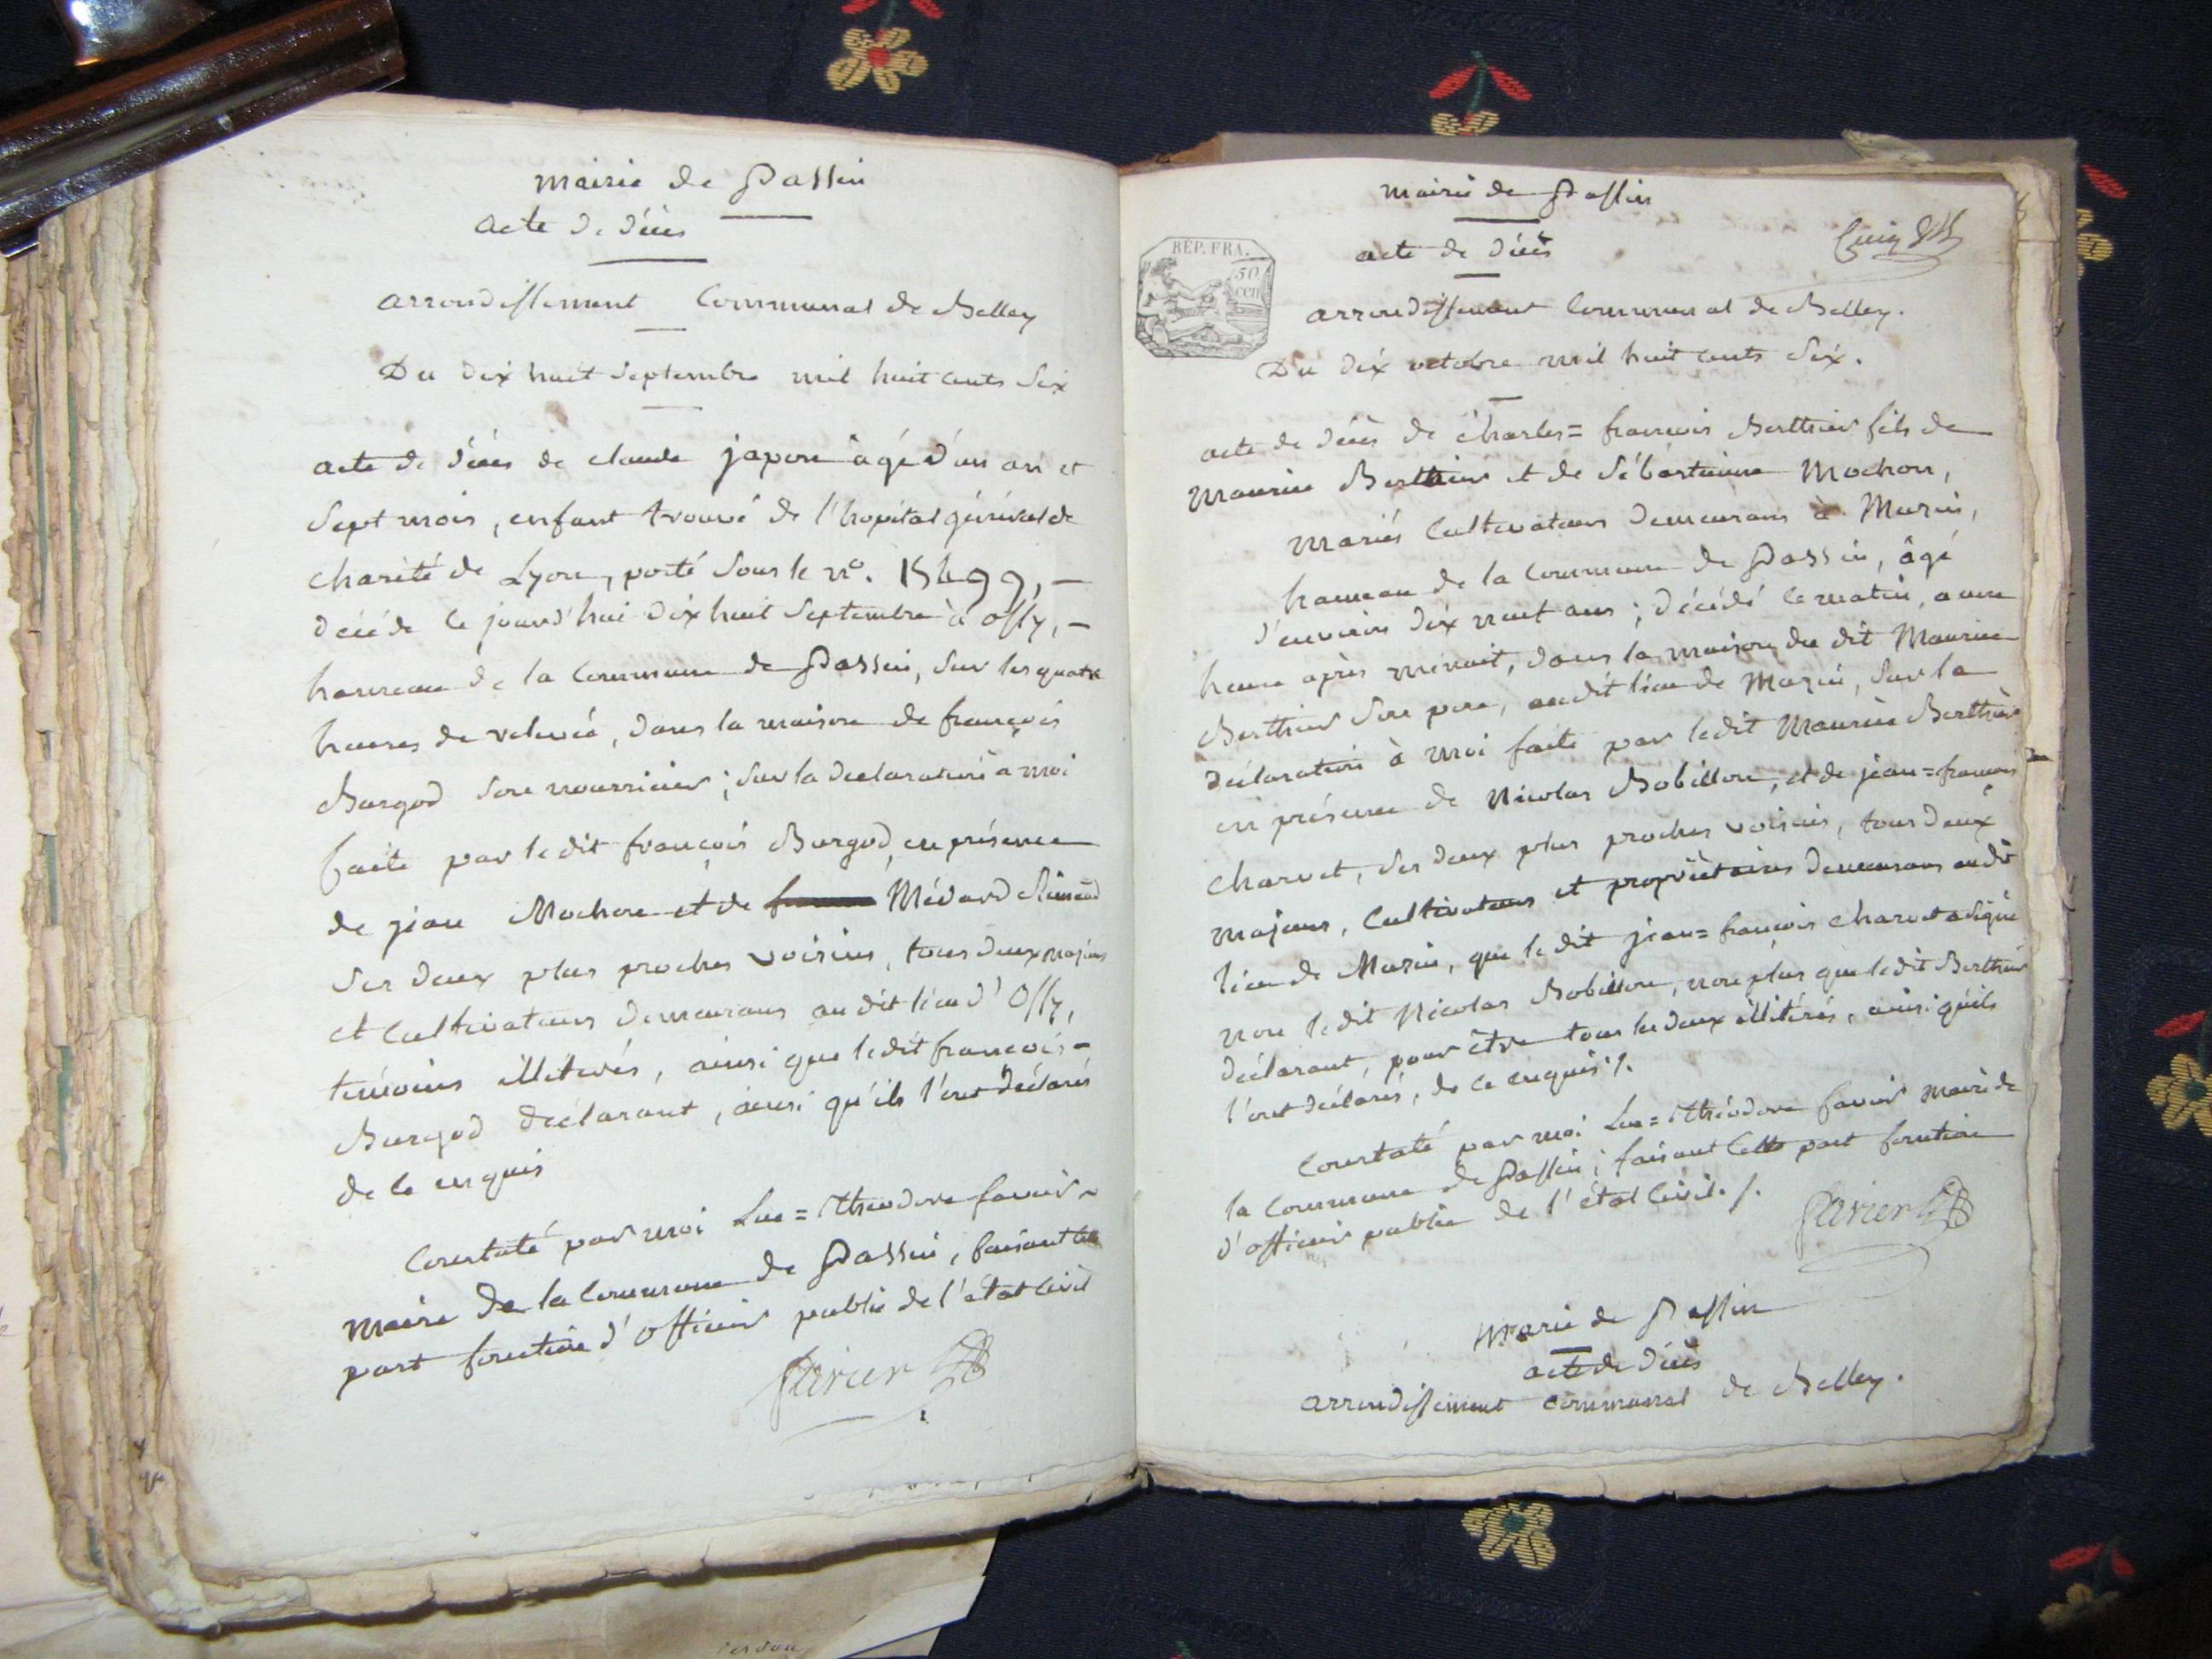 mairie de Passin
acte de décès
arrondissement Communal de Belley
Du dix huit Septembre mil huit cents Six
acte de décès de claude japon âgé d'un an et
Sept mois, enfant trouvé de l'hopital général de
charité de Lyon, porté Sous le n°. 15499, –
décédé le jourd'hui dix huit Septembre à ossy, –
hameau de la Commune de Passin, Sur les quatre
heures de relevée, dans la maison de françois
Burgod Son nourricier ; Sur la declaration à moi
faite par le dit françois Burgod, en présence
de jean Mochon et de Médard
Ses deux plus proches voisins, tous deux majeurs
et Cultivateurs demeurans au dit lieu d'Ossy,
temoins illiterés, ainsi que le dit françois –
Burgod déclarant, ainsi qu'ils l'ont déclarés
de ce enquis
Constaté par moi Luc=Théodore favier –
maire de la Commune de Passin, faisant cette
part fonction d'officier public de l'état Civil
favier
mairie de Passin
REP. FRA.
50
cen
acte de décès
arrondissement Communal de Belley.
Du dix octobre mil huit cents Six.
acte de décès de charles=françois Berthier fils de
Maurice Berthier et de Sébastienne Mochon,
mariés Cultivateurs demeurans à Muzin,
hameau de la Commune de Passin, âgé
d'environ dix neuf ans ; décédé ce matin, a une
heure après minuit, dans la maison du dit Maurice
Berthier Son pere, au dit lieu de Muzin, Sur la
déclaration à moi faite par le dit Maurice Berthier
en présence de Nicolas Bobillon, et de jean=françois
charvet, Ses deux plus proches voisins, tous deux
majeurs, Cultivateurs et propriétaires demeurans au dit
lieu de Muzin, que le dit jean=françois charvet a signé
non le dit Nicolas Bobillon, non plus que le dit Berthier
déclarant, pour être tous les deux illitérés, ainsi qu'ils
l'ont déclarés, de ce enquis ./.
Constaté par moi Luc=Théodore favier Maire de
la Commune de Passin ; faisant Cette part fonction
d'officier public de l'état Civil. /.
favier
Mairie de Passin
acte de décès
arrondissement communal de Belley.